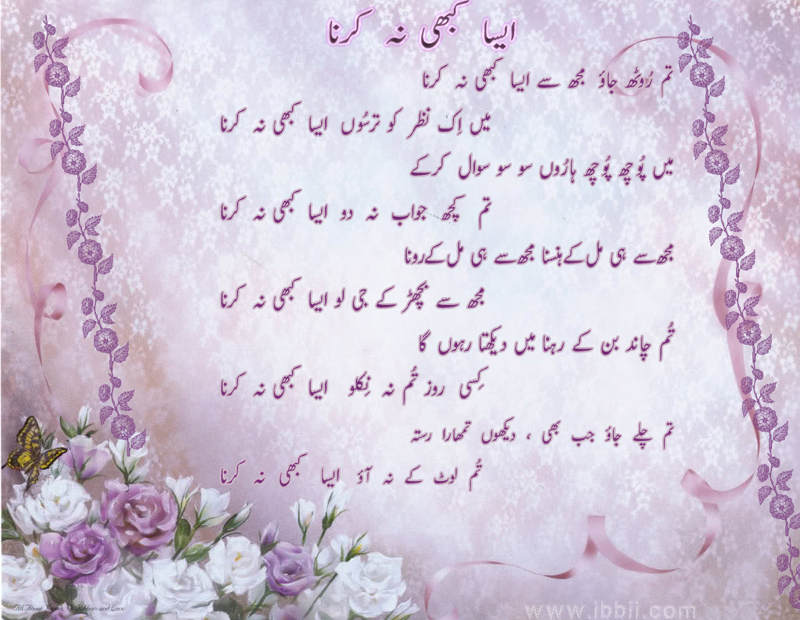 ایسا کبھی نہ کرنا
تم رُوٹھ جاؤ مجھ سے ایسا کبھی نہ کرنا
میں اِک نظر کو ترسُوں ایسا کبھی نہ کرنا
میں پُوچھ پُوچھ ہارُوں سو سو سوال کرکے
تم کچھ جواب نہ دو ایسا کبھی نہ کرنا
مجھ سے ہی مل کے ہنسنا مجھ سے ہی مل کے رونا
مجھ سے بچھڑ کے جی لو ایسا کبھی نہ کرنا
تُم چاند بن کے رہنا میں دیکھتا رہوں گا
کِسی روز تُم نہ نِکلو ایسا کبھی نہ کرنا
تم چلے جاؤ جب بھی ، دیکھوں تمھارا رستہ
تُم لوٹ کے نہ آؤ ایسا کبھی نہ کرنا
www.ibbii.com